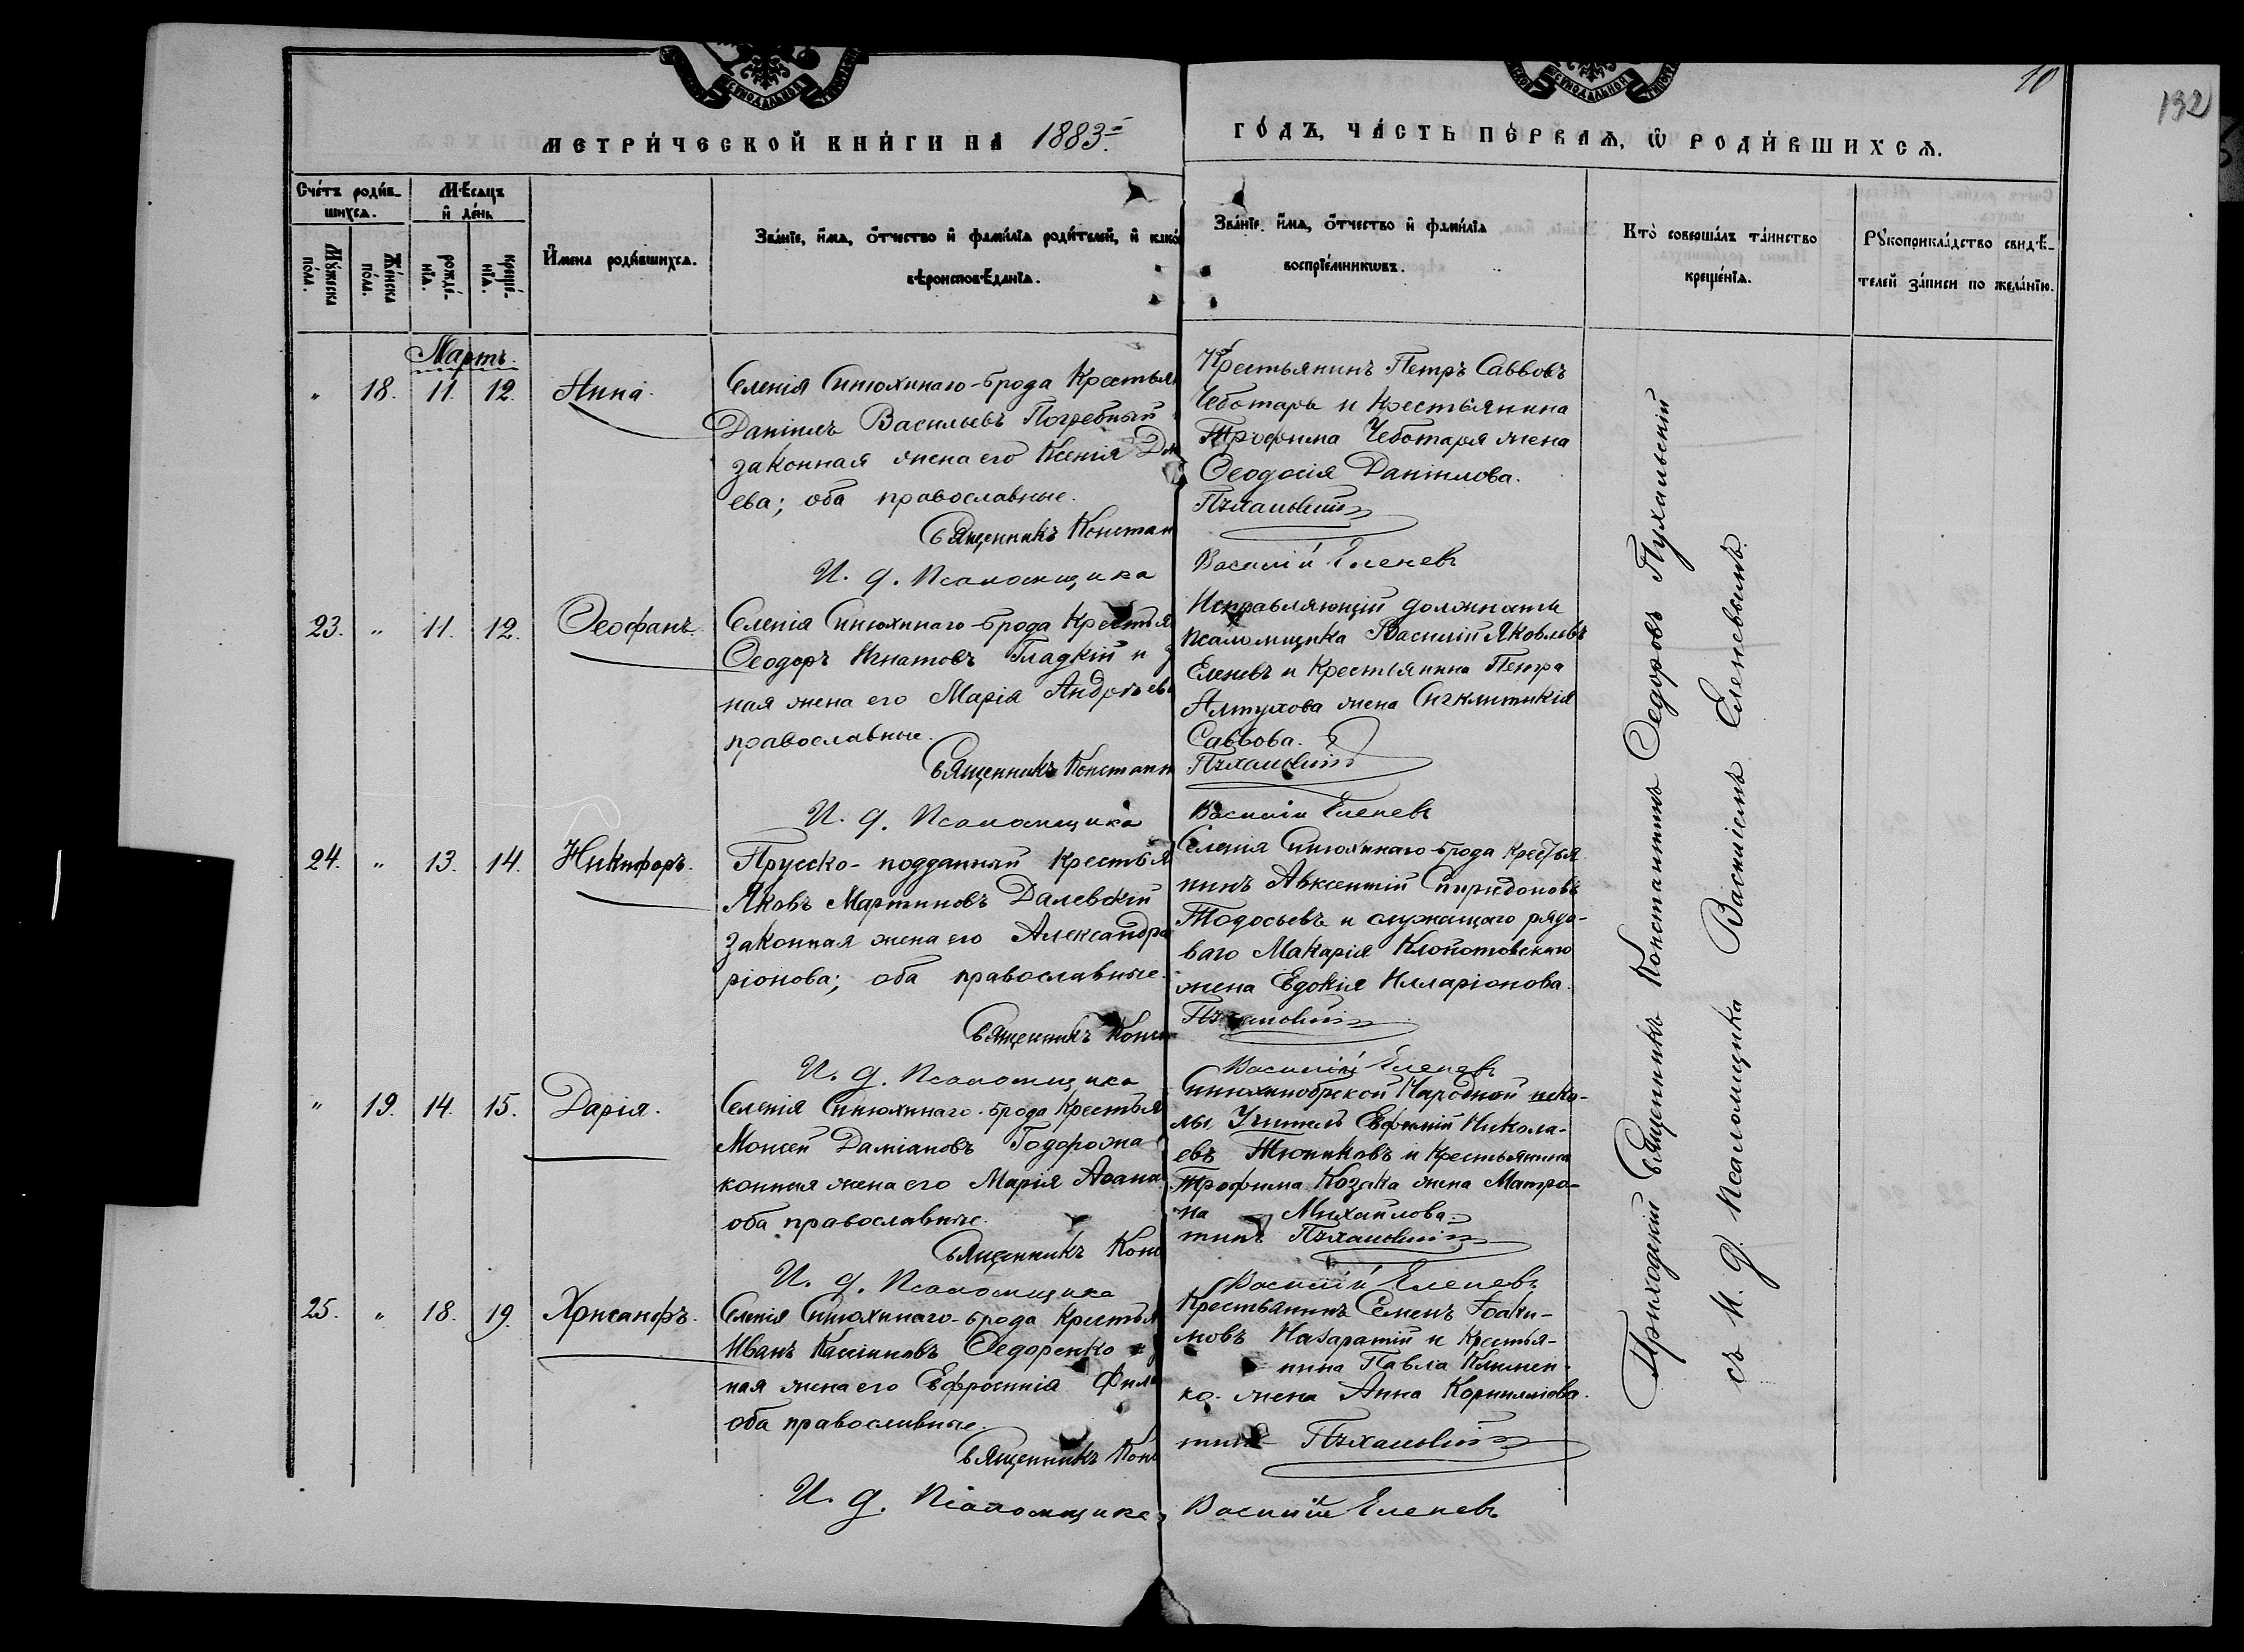 10
132
МЕТРИ́ЧЕСКОЙ КНИ́ГИ НА 1883.
ГО́ДЪ, ЧА́СТЬ ПЕ́РВАѦ, Ѡ РОДИ́ВШИХСѦ.
Сче́тъ роди́в-
шихсѧ.
Мꙋ́жеска по́ла.
Же́нска по́ла.
Мѣ́сѧцъ
и де́нь
рожде́-
нїѧ.
креще́-
нїѧ.
И́мена роди́вшихсѧ.
Зва́нїе, и́мѧ, ѻ́тчество и фами́лїѧ роди́телей, и како́
вѣроисповѣ́данїѧ.
Зва́нїе, и́мѧ, ѻ́тчество и фами́лїѧ
воспрїе́мникѡвъ.
Кто̀ соверша́лъ та́инство
креще́нїѧ.
Рꙋкоприкла́дство свидѣ́-
телей за́писи по жела́нїю.
Мартъ.
" 18. 11. 12. Анна.
Селенія Синюхинаго-брода Крестья
Даніилъ Васильевъ Погребный
законная жена его Ксенія
ева; оба православные.
Священникъ Констан
И. д. Псаломщика
Крестьянинъ Петръ Саввовъ
Чеботарь и Крестьянина
Трофима Чеботаря жена
Ѳеодосія Даніилова.
Пухальскій
Василій Еленевъ
23. " 11. 12. Ѳеофанъ.
Селенія Синюхинаго-брода Крестья
Ѳеодоръ Игнатовъ Гладкій и з
ная жена его Марія Андреев
православные.
Священникъ Констант
И. д. Псаломщика
Исправляющій должность
псаломщика Василій Яковлевъ
Еленевъ и Крестьянина Петра
Алтухова жена Сигклитикія
Саввова.
Пухальскій
Василій Еленевъ
24. " 13. 14. Никифоръ.
Прусско-подданный Крестья
Яковъ Мартиновъ Далевскій
законная жена его Александра
ріонова; оба православные.
Священникъ Конст
И. д. Псаломщика
Селенія Синюхинаго-брода Крестья
нинъ Авксентій Спиридоновъ
Тодосьевъ и служащаго рядо-
ваго Макарія Клопотовскаго
жена Евдокія Илларіонова.
Пухальскій
Василій Еленевъ
" 19. 14. 15. Дарія.
Селенія Синюхинаго-брода Крестья
Моисей Даміановъ Подорожна
конная жена его Марія Аѳана
оба православные.
Священникъ Конс
И. д. Псаломщика
Синюхинобрской Народной шко-
лы Учитель Евфимій Никола-
евъ Тюпиковъ и Крестьянина
Трофима Козака жена Матро-
на Михайлова.
тинъ Пухальскій
Василій Еленевъ
25. " 18. 19. Хрисанфъ.
Селенія Синюхинаго-брода Крестья
Иванъ Кассіановъ Ѳедоренко и з
ная жена его Евфросинія Фила
оба православные.
Священникъ Конс
И. д. Псаломщика
Крестьянинъ Семенъ Іоаки-
мовъ Назаратій и Крестья-
нина Павла Климен-
ко жена Анна Корниліова.
тинъ Пухальскій
Василій Еленевъ
Приходскій Священникъ Константинъ Ѳедоровъ Пухальскій
съ И. д. Псаломщика Василіемъ Еленевымъ.